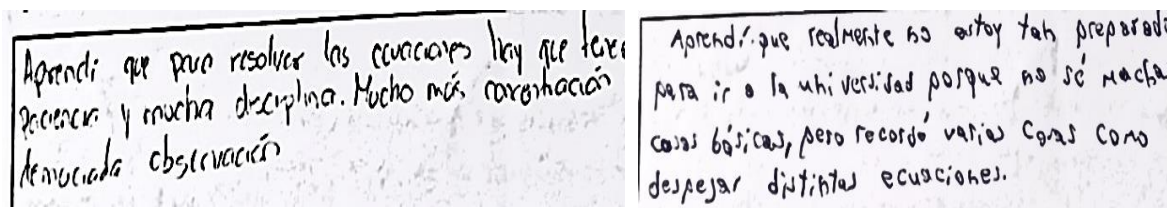 Aprendi que para resolver las ecuaciones hay que tener
paciencia y mucha disciplina. Mucho más, concentración
demaciada observación
Aprendí que realmente no estoy tan preparado
para ir a la universidad porque no sé muchas
cosas básicas, pero recordó varias cosas como
despejar distintas ecuaciones.